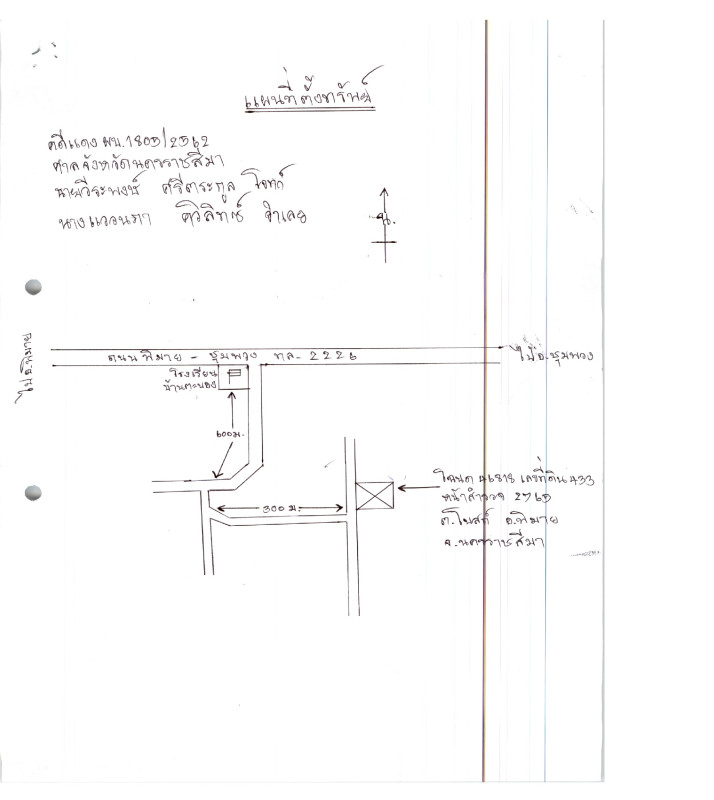 แผนที่ตั้งทรัพย์
คดีแดง ผบ.1805/2562
ศาลจังหวัดนครราชสีมา
นายวีระพงษ์ ศรีตระกูล โจทก์
นาง จำเลย
น.
ไป อ.พิมาย
ถนน พิมาย - ชุมพวง ทล. 2226
ไป อ.ชุมพวง
โรงเรียน
บ้านตะบอง
600 ม.
300 ม.
โฉนด 46818 เลขที่ดิน 433
หน้าสำรวจ 2765
ต.โบสถ์ อ.พิมาย
จ.นครราชสีมา